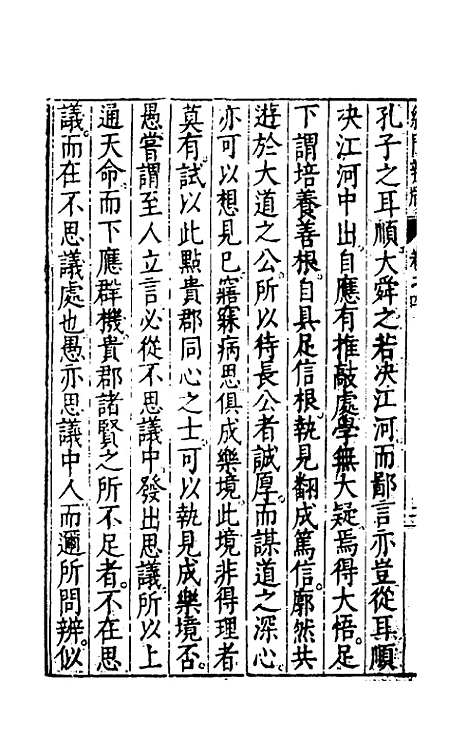 孔子之耳順大舜之若决江河而鄙言亦豈從耳順
决江河中出自應有推敲處學無大疑焉得大悟足
下謂培養善根自具足信根執見翻成篤信廓然共
遊於大道之公所以待長公者誠厚而謀道之深心
亦可以想見已寤寐病思俱成樂境此境非得理者
莫有試以此點貴郡同心之士可以執見成樂境否
愚嘗謂至人立言必從不思議中發出思議所以上
通天命而下應群機貴郡諸賢之所不足者不在思
議而在不思議處也愚亦思議中人而邇所問辨似